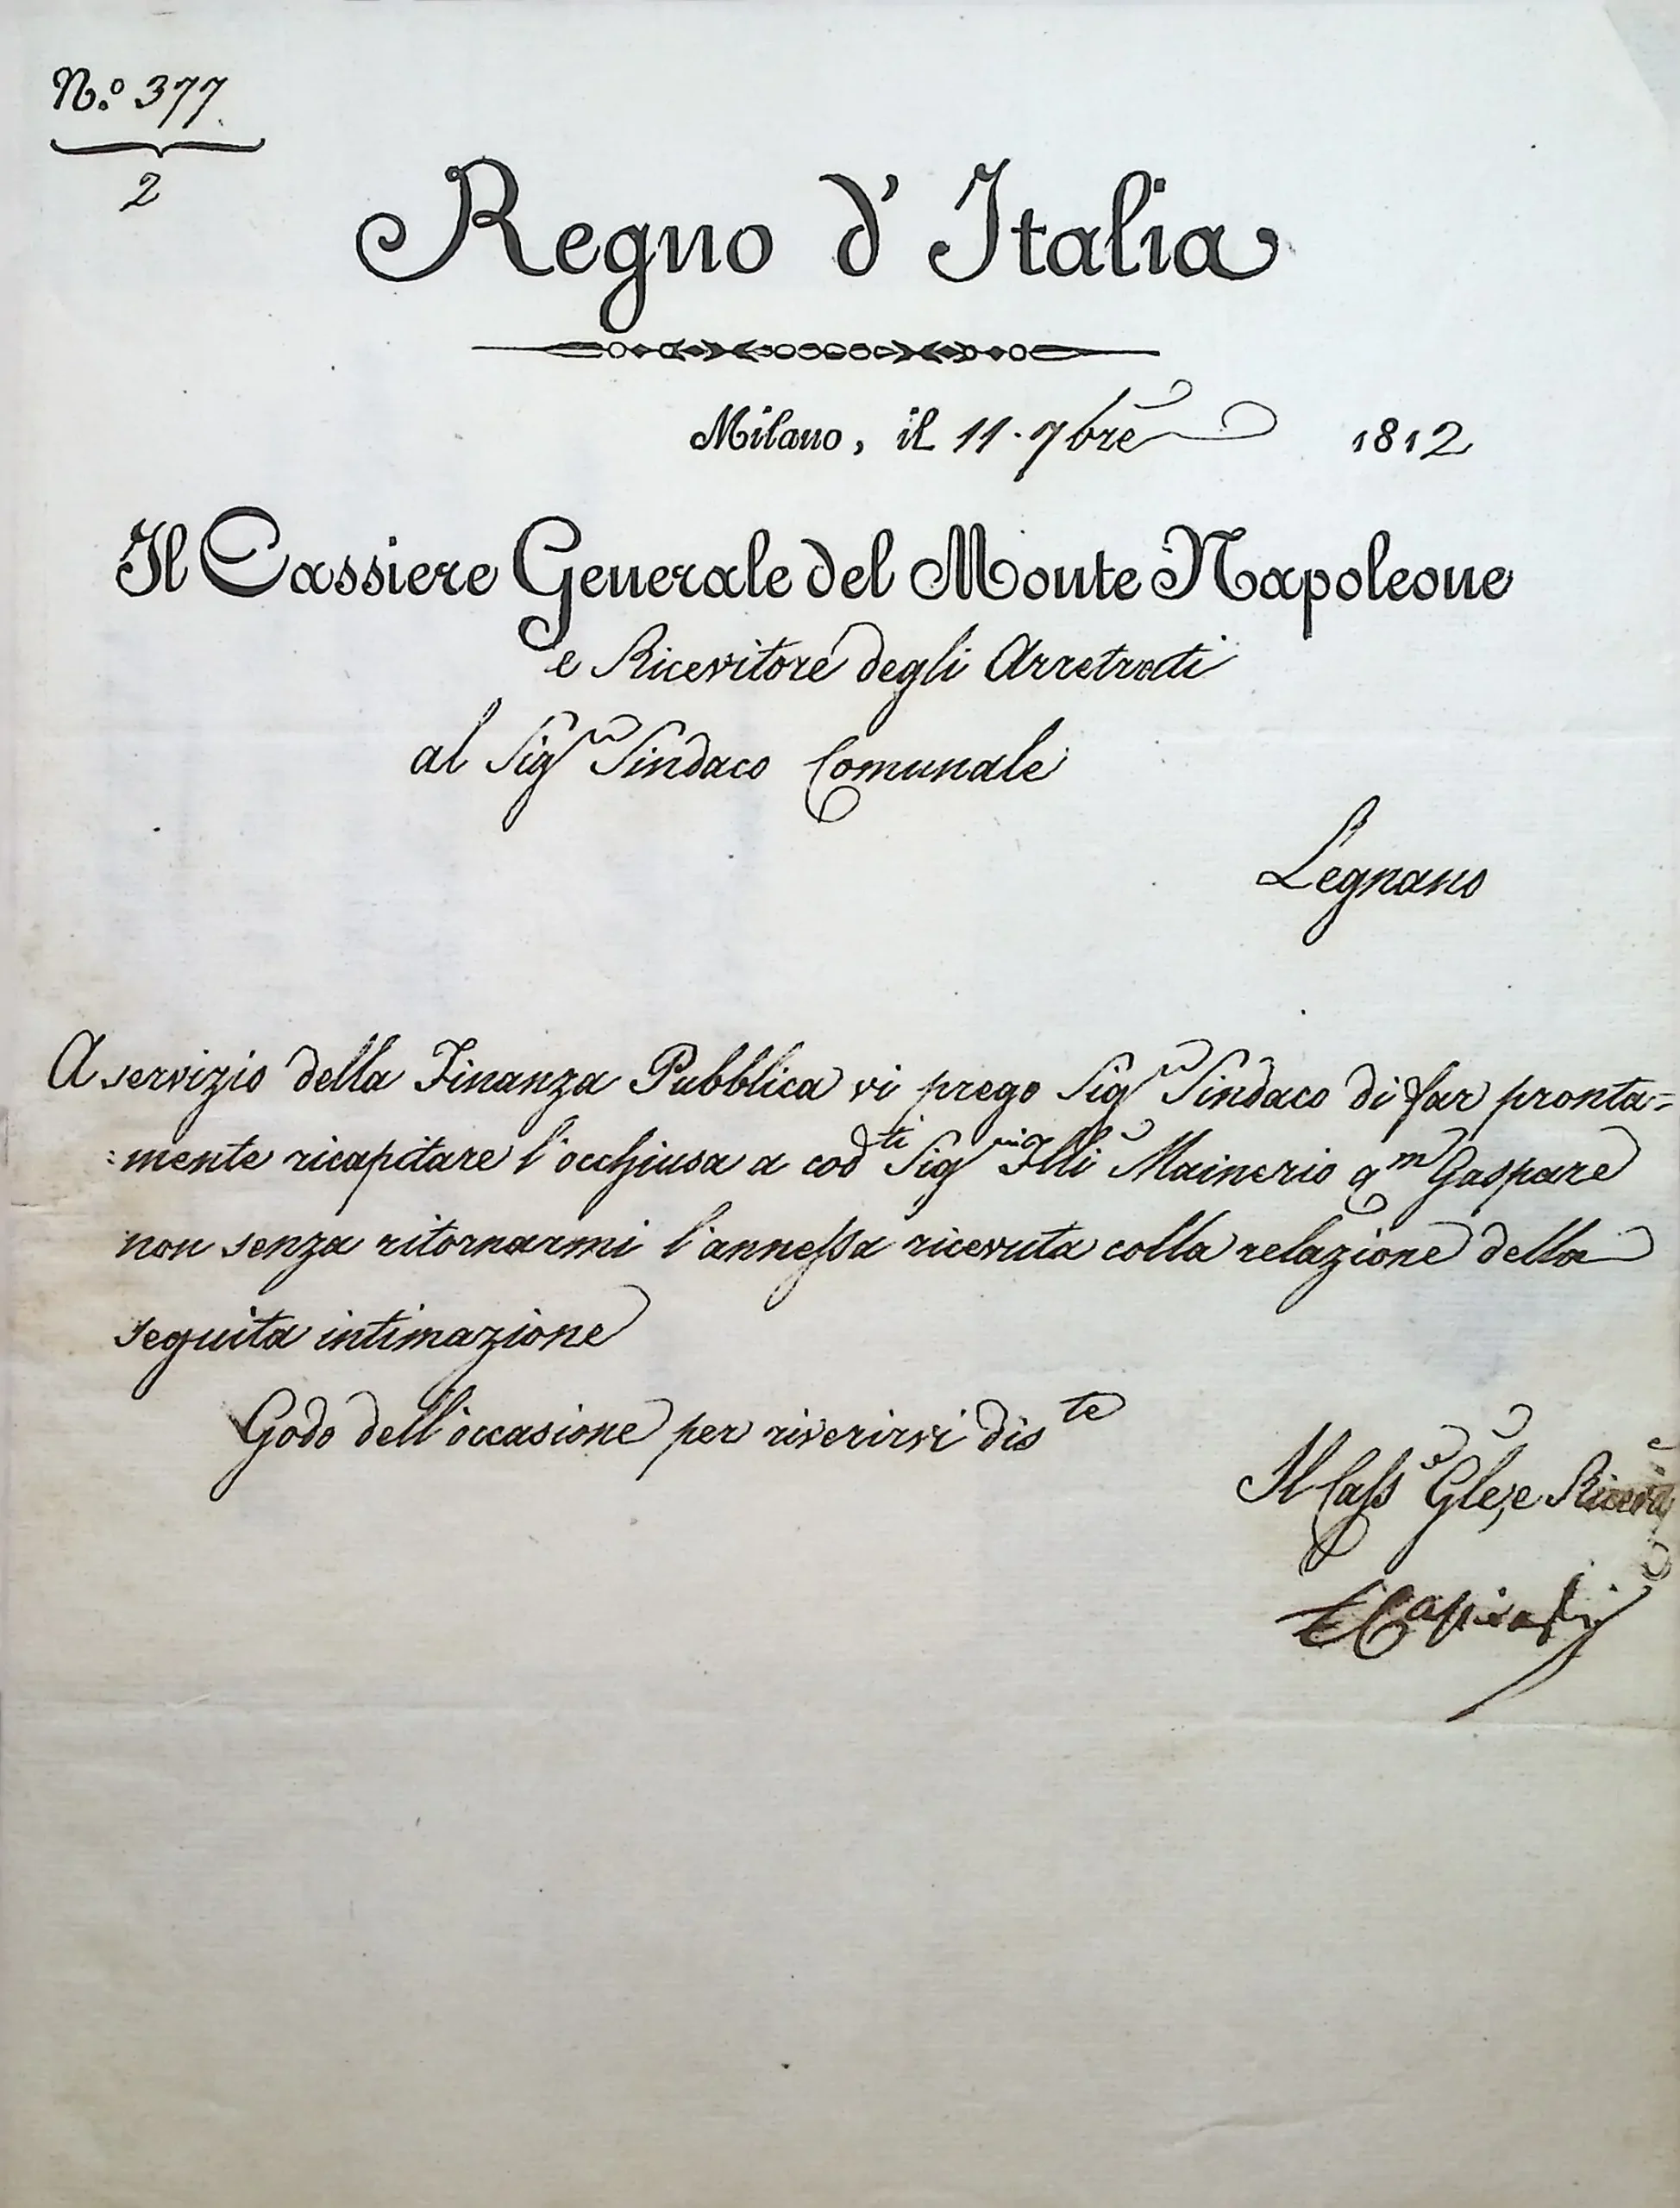 N.º 377
2
Regno d'Italia
Milano, il 11. 7bre 1812
Il Cassiere Generale del Monte Napoleone
e Ricevitore degli Arretrati
al Sigr Sindaco Comunale
Legnano
A servizio della Finanza Pubblica vi prego Sigr Sindaco di far pronta=
:mente ricapitare l'occhiusa a codti Sigri Flli Mainerio qm Gaspare
non senza ritornarmi l'annessa ricevuta colla relazione della
seguita intimazione
Godo dell'occasione per riverirvi diste
Il Casse Gle, e